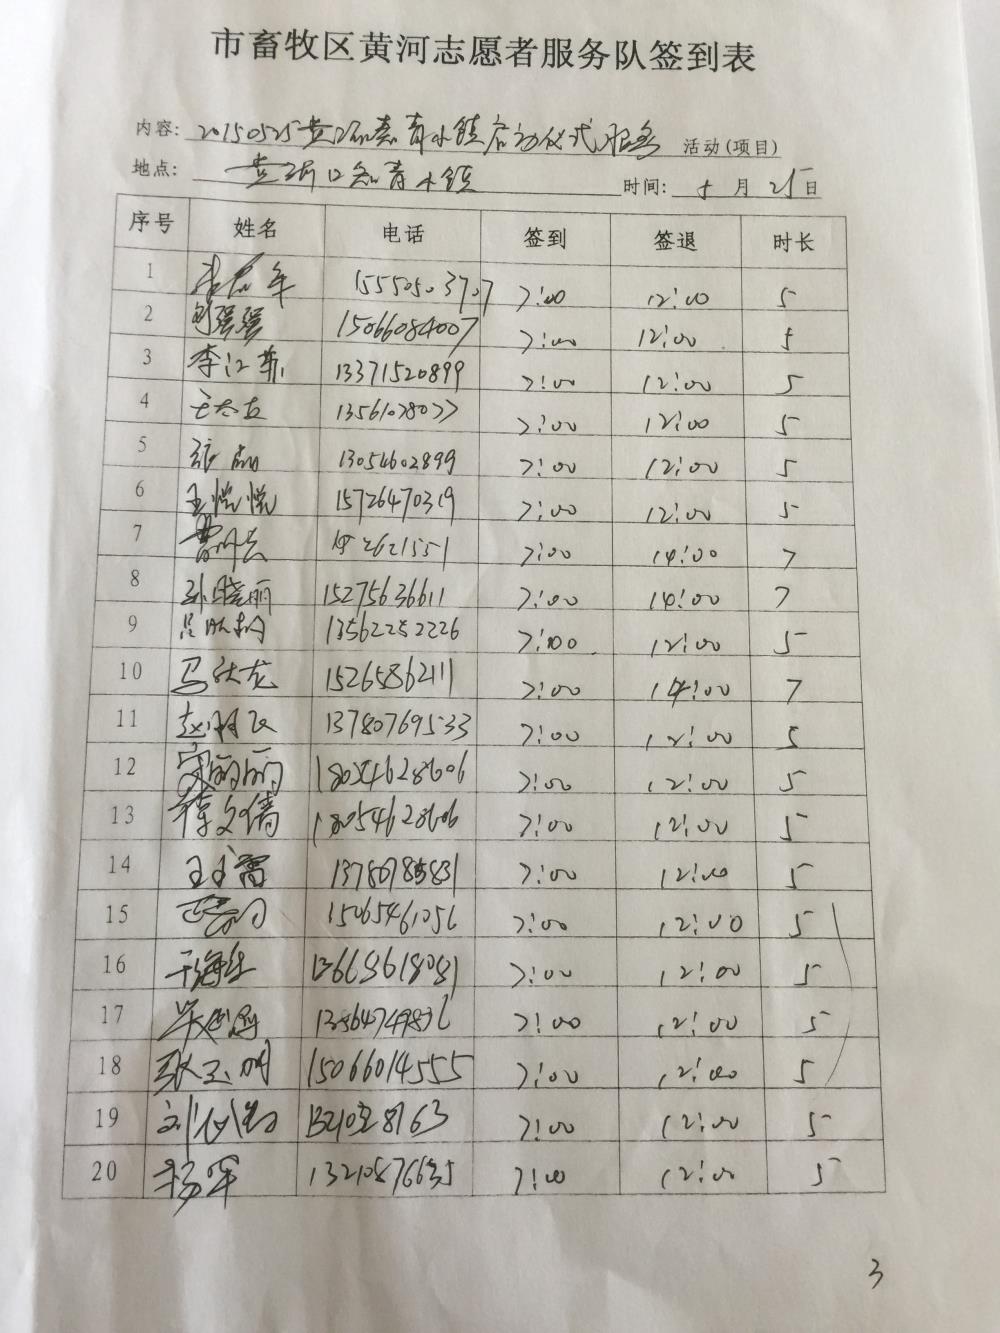 市畜牧区黄河志愿者服务队签到表
内容: 20150525黄河口知青小镇启动仪式服务 活动(项目)
地点: 黄河口知青小镇 时间: 5月25日
序号 姓名 电话 签到 签退 时长
1 15550503707 7:00 12:00 5
2 刘强强 15066084007 7:00 12:00 5
3 李江燕 13371520899 7:00 12:00 5
4 7:00 12:00 5
5 张 13054602899 7:00 12:00 5
6 王悦悦 15726470319 7:00 12:00 5
7 7:00 14:00 7
8 孙晓丽 15275636611 7:00 14:00 7
9 13562252226 7:00 12:00 5
10 马 15265862111 7:00 14:00 7
11 赵 13780769533 7:00 12:00 5
12 宋丽丽 18054628606 7:00 12:00 5
13 徐文倩 18054628606 7:00 12:00 5
14 7:00 12:00 5
15 15065461056 7:00 12:00 5
16 于海 7:00 12:00 5
17 7:00 12:00 5
18 张玉明 15066014555 7:00 12:00 5
19 刘 7:00 12:00 5
20 杨军 7:00 12:00 5
3